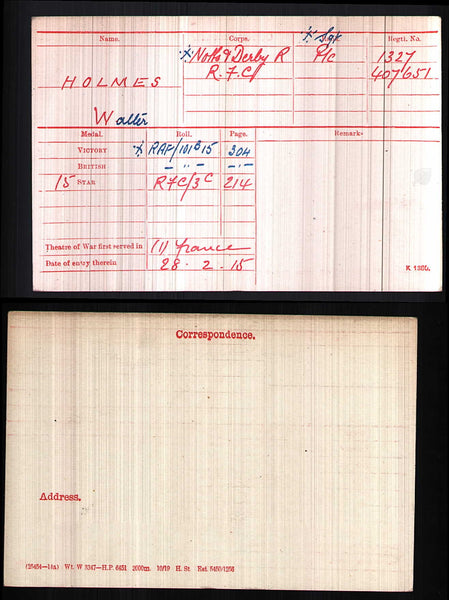 Name. Corps. Regtl. No.
X Sgt
X Notts & Derby R Pte 1327
R.F.C/ 407651
HOLMES
Walter
Medal. Roll. Page. Remarks.
VICTORY X RAF/101B15 304
BRITISH - " - - " -
15 STAR RFC/3C 214
Theatre of War first served in (1) France
Date of entry therein 28. 2. 15
K 1380.
Correspondence.
Address.
(25454—14A) Wt. W 3347—H.P. 6451 2000m. 10/19 H. St Est 5450/1256